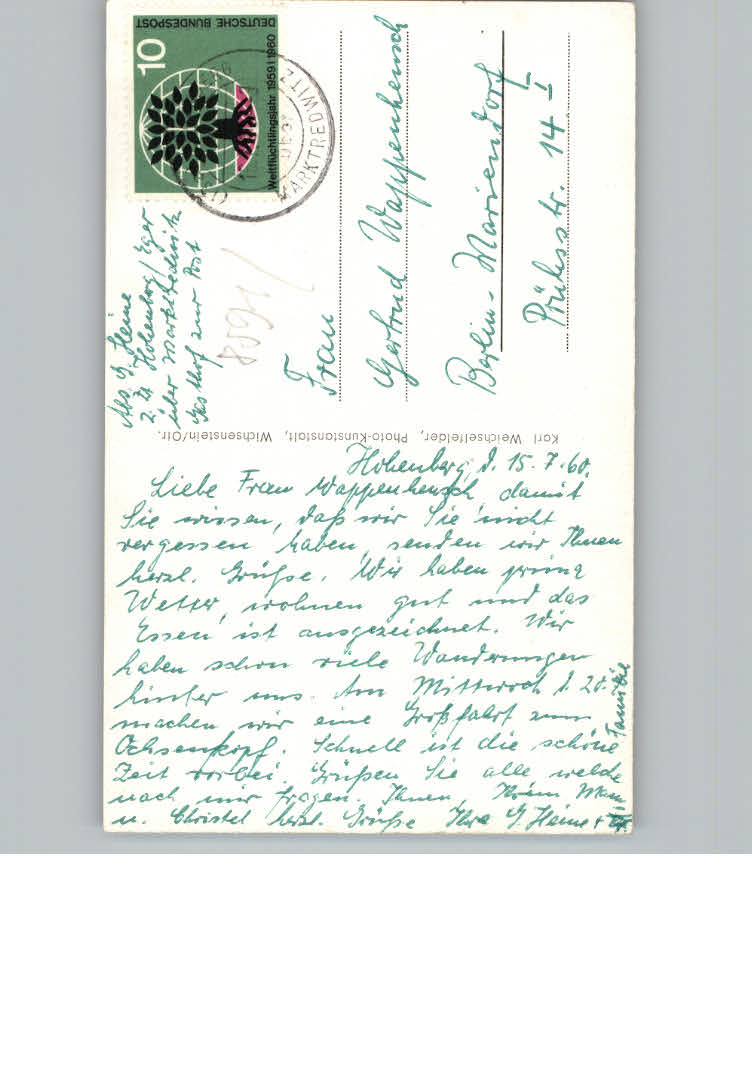 DEUTSCHE BUNDESPOST
10
Weltflüchtlingsjahr 1959/1960
MARKTREDWITZ
Abs. G. Heine
z. Zt. Hohenberg/Eger
über Marktredwitz
Gasthof zur Post
8591/
Frau
Gertrud Wappenhensch
Berlin-Mariendorf
Prühsstr. 14 I
Karl Weichselfelder, Photo-Kunstanstalt, Wichsenstein/Ofr.
Hohenberg, d. 15.7.60.
Liebe Frau Wappenhensch, damit
Sie wissen, daß wir Sie nicht
vergessen haben, senden wir Ihnen
herzl. Grüße. Wir haben prima
Wetter, wohnen gut und das
Essen ist ausgezeichnet. Wir
haben schon viele Wanderungen
hinter uns. Am Mittwoch d. 20.
machen wir eine Großfahrt zum
Ochsenkopf. Schnell ist die schöne
Zeit vorbei. Grüßen Sie alle welche
nach mir fragen. Ihnen, Ihrem Mann
u. Christel herzl. Grüße Ihre G. Heine +
Familie